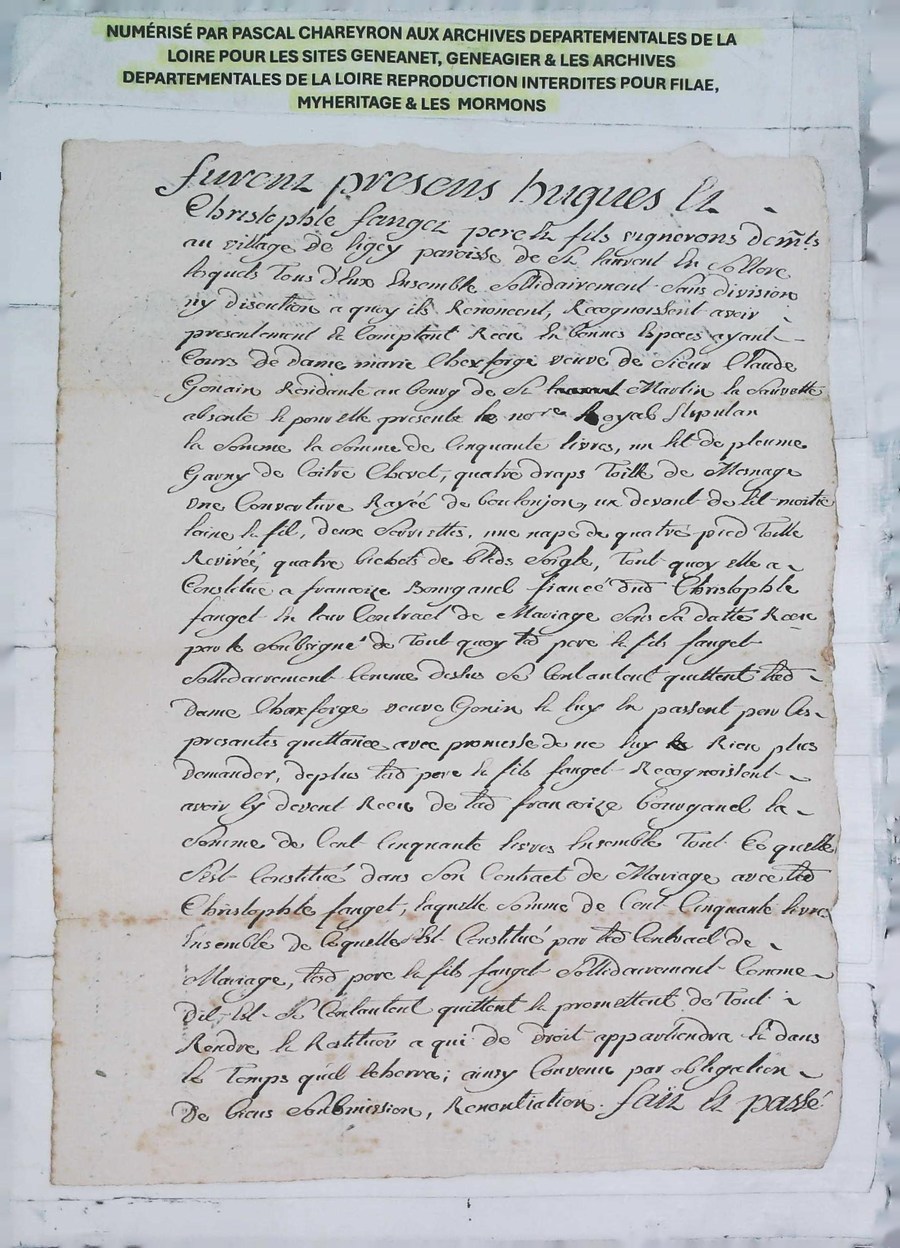 NUMÉRISÉ PAR PASCAL CHAREYRON AUX ARCHIVES DEPARTEMENTALES DE LA
LOIRE POUR LES SITES GENEANET, GENEAGIER & LES ARCHIVES
DEPARTEMENTALES DE LA LOIRE REPRODUCTION INTERDITES POUR FILAE,
MYHERITAGE & LES MORMONS
furent presens hugues Et
Christophle fanget pere Et fils vignerons demts
au village de ligey paroisse de St laurent En Sollore
lesquels Tous d'Eux Ensemble Sollidairement Sans division
ny discution a quoy ils Renoncent, Recognoissent avoir
presentement Et Comptant Receu En bonnes Especes ayant
Cours de dame marie Cherforge veuve de Sieur Claude
Gonain Residante au bourg de St Martin la Sauvette
absente Et pour Elle presente le nore Royal Stipulan
la Somme la Somme de Cinquante livres, un lit de plume
Garny de Coitre Chevet, quatre draps Toille de Mesnage
Une Couverture Rayéé de boulonjon, un devant de Lit moitie
laine Et fil, deux Serviettes, une nape de quatre pied Toille
Reviréé, quatre bichets de bleds Soigle, Tout quoy elle a
Constitue a francoize Bourganel fiancé dud Christophle
fanget En leur Contract de Mariage Sous Sa datte Receu
par le Soubsigné de Tout quoy lesd pere Et fils fanget
Sollidairement Comme dessus Se Contantent quittent lad
Dame Cherforge veuve Gonin Et luy En passent par Ces
presantes quittance avec promesse de ne luy Rien plus
demander, deplus lesd pere Et fils fanget Recognoissent
avoir Cy devent Receu de lad francoize bourganel la
Somme de Cent Cinquante livres Ensemble Tout Ce quelle
S'Est Constitué dans Son Contract de Mariage avec led
Christophle fanget, laquelle Somme de Cent Cinquante livres
Ensemble de Cequelle S'Est Constitué par led Contract de
Mariage, lesd pere Et fils fanget Sollidairement Comme
dit Est Se Contantent quittent Et promettent de Tout
Rendre Et Restituer a qui de Droit appartiendra Et dans
le Temps quil Echerra; ainsy Convenu par obligation
de biens Soubmission, Renontiation. faiт Et passé